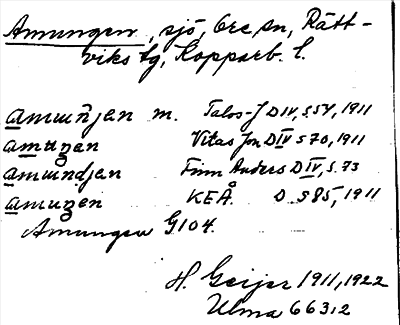 Amungen, sjö, Ore sn, Rätt-
viks tg, Kopparb. l.
amuŋ̄jen m. Talos-J D IV, s 54, 1911
amuŋen Vitas Jon D IV s 70, 1911
amundjen Finn Anders D IV, s. 73
amuŋen KEÅ. D. s 85, 1911
Amungen G104.
H. Geijer 1911, 1922
Ulma 663:2